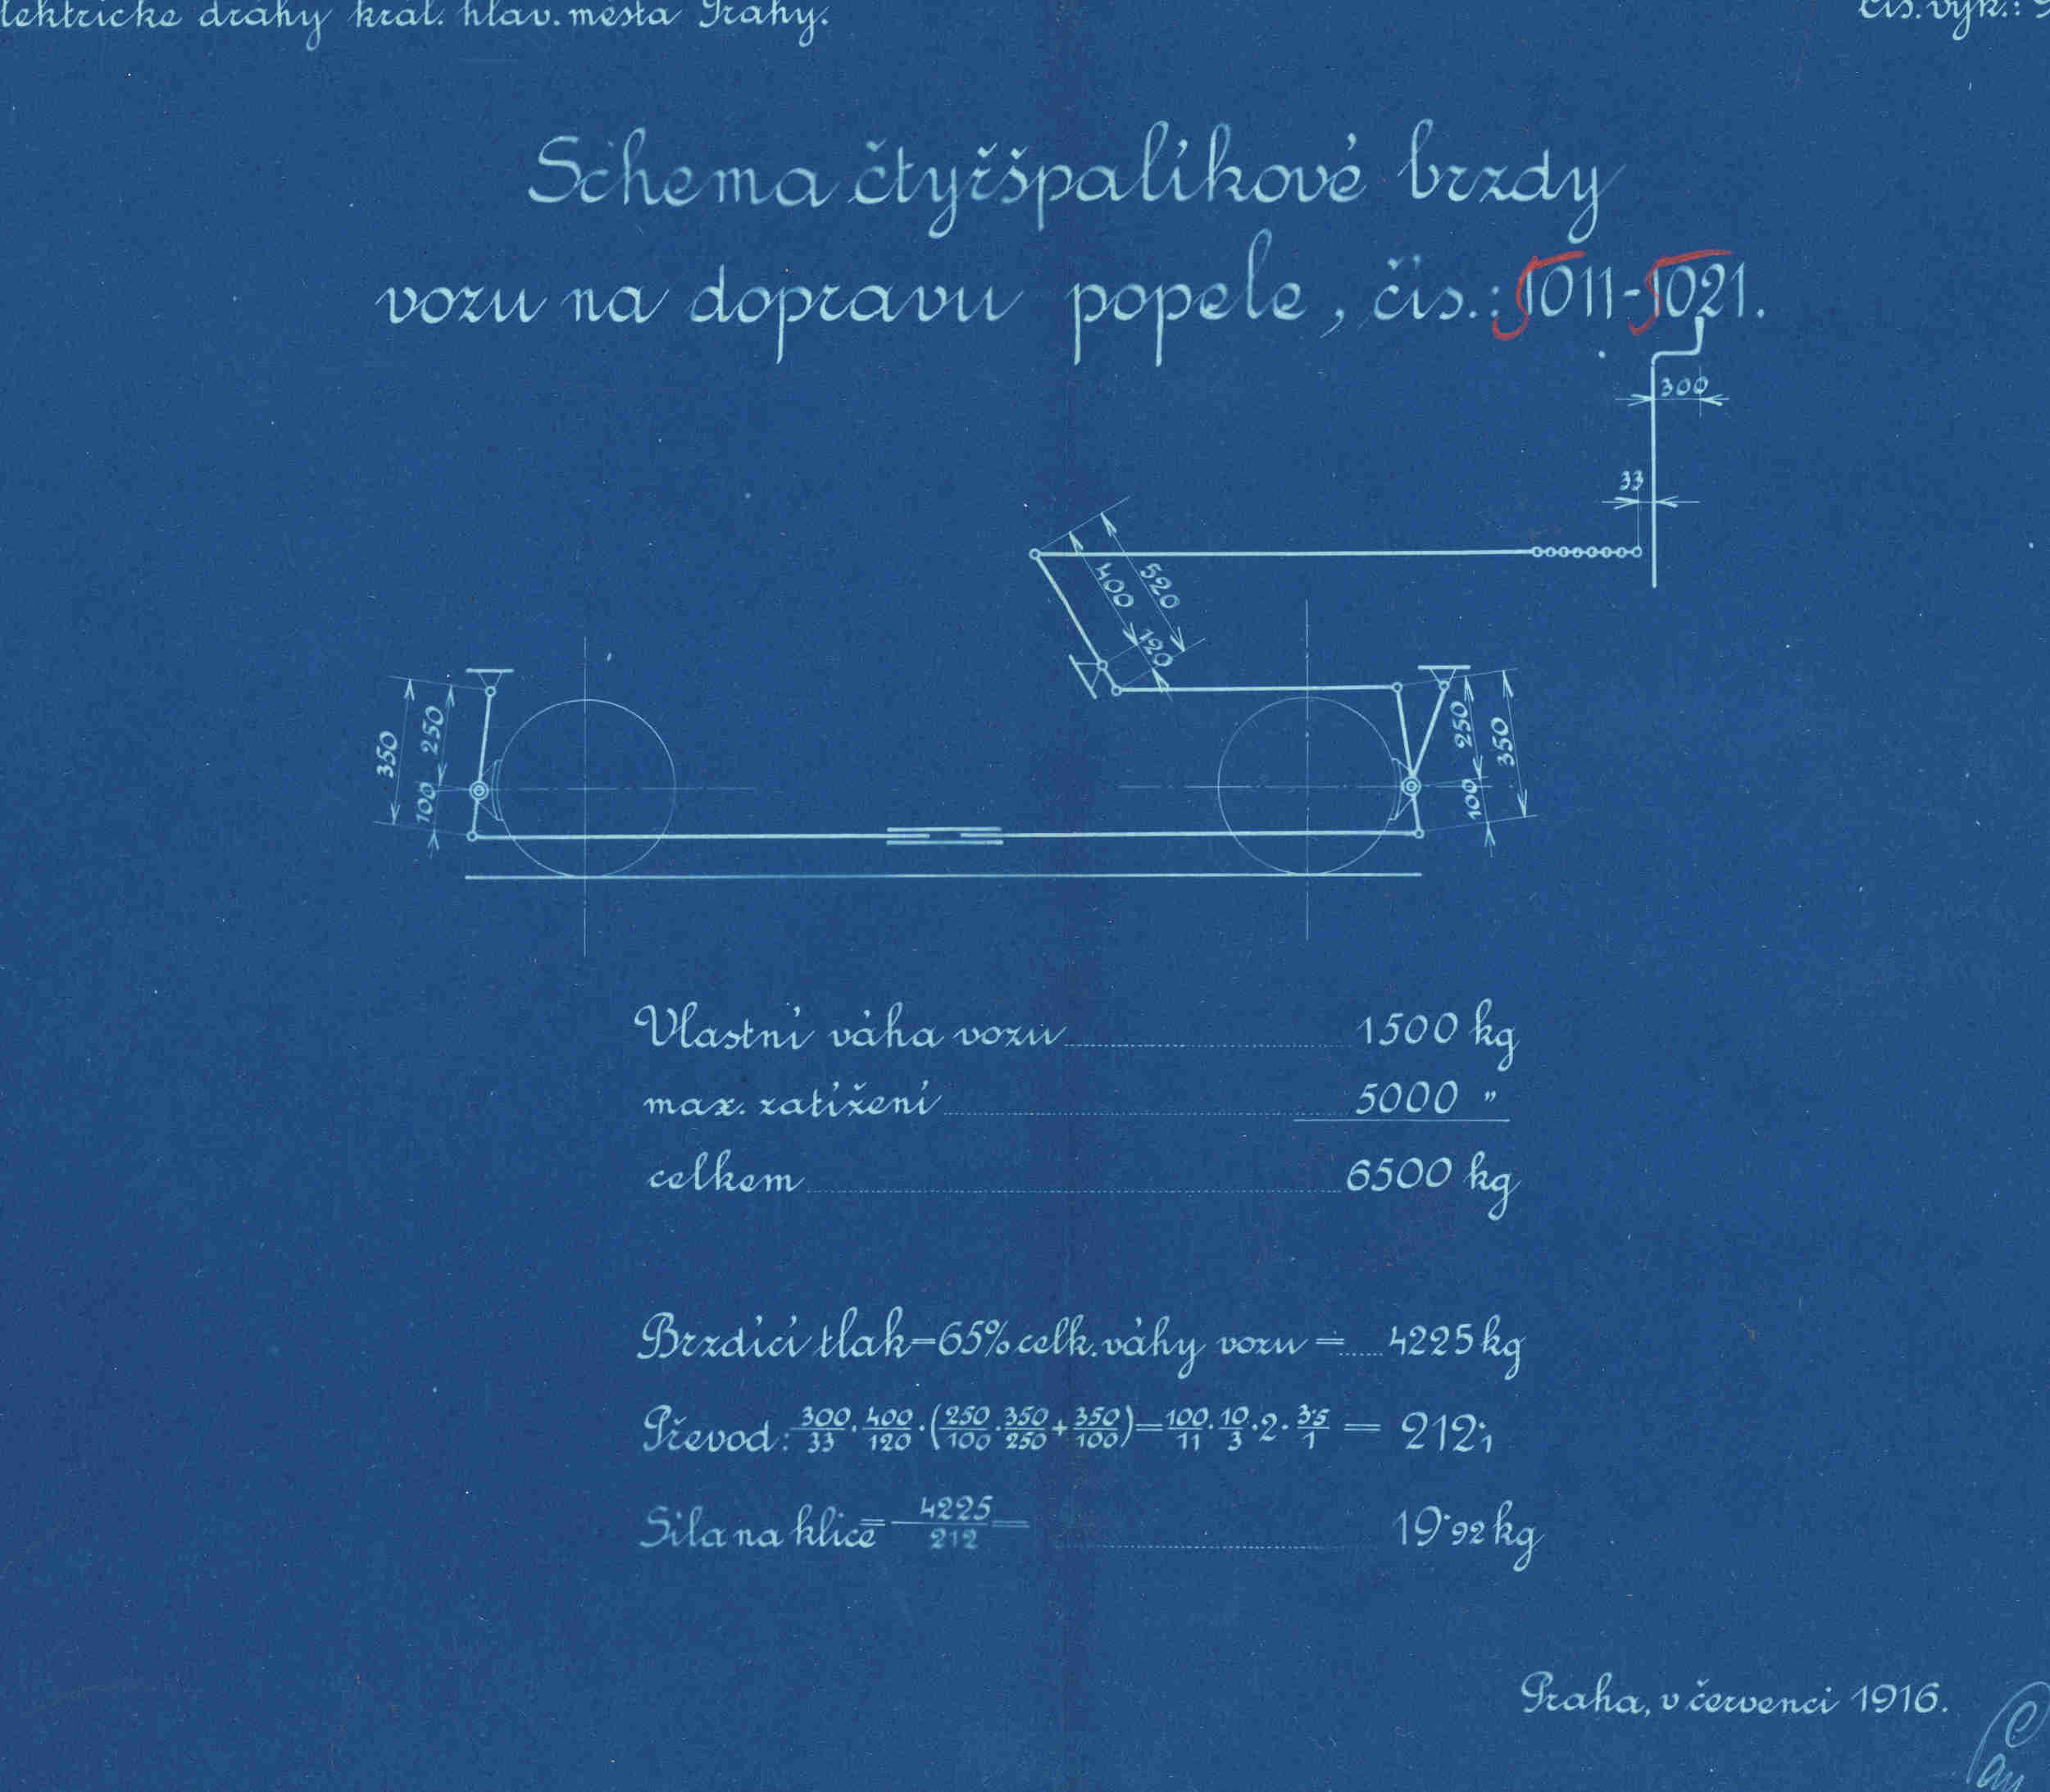 lektrické dráhy král. hlav. města Prahy.
čís. výk.:
Schema čtyřšpalíkové brzdy
vozu na dopravu popele, čís.: 5011-5021.
300
33
520
400
120
350
250
100
250
350
100
Vlastní váha vozu 1500 kg
max. zatížení 5000 "
celkem 6500 kg
Brzdící tlak=65% celk. váhy vozu = 4225 kg
Převod: 300/33 · 400/120 · (250/100 · 350/250 + 350/100) = 100/11 · 10/3 · 2 · 3·5/1 = 212·1
Síla na klice = 4225/212 = 19·92 kg
Praha, v červenci 1916.